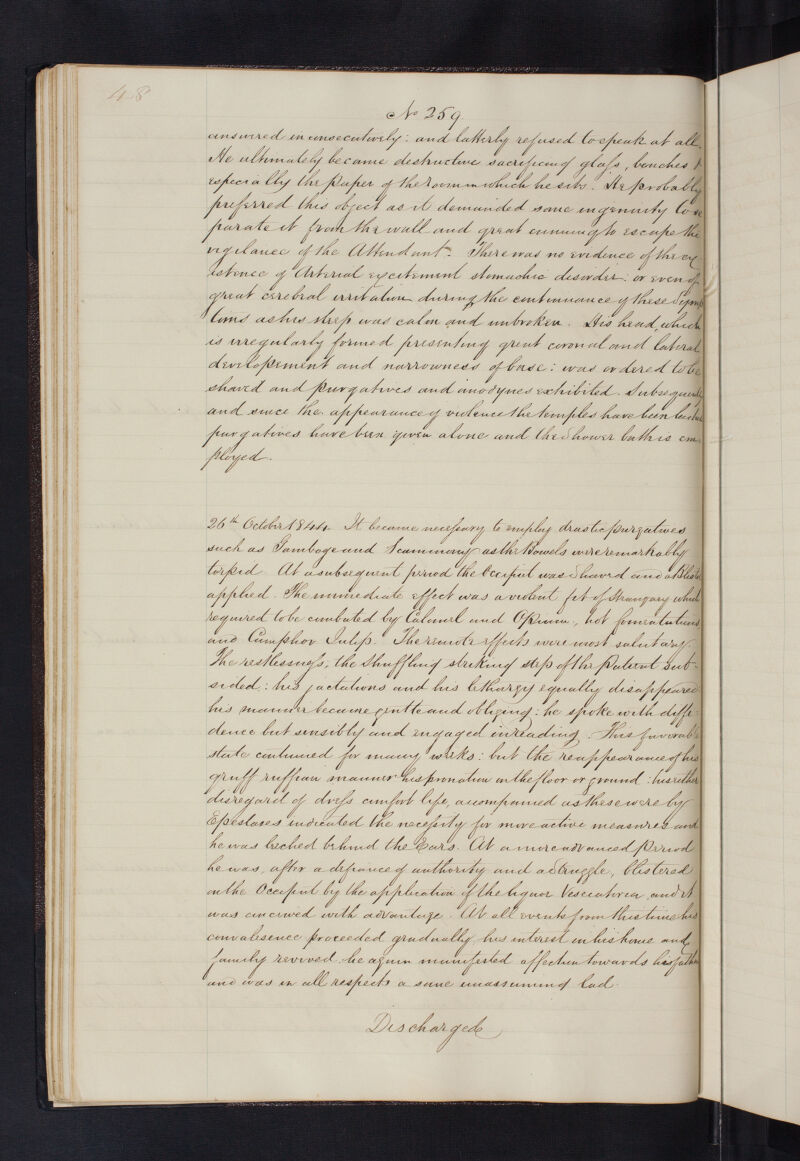 48
No 259
answered inconsecutively: and latterly refused to speak at all.
He ultimately became destructive sacrificing glass, benches &
especially the paper of the room in which he sits. He probably
preferred this object as it demanded some ingenuity to se
parate it from the wall and great cunning to escape the
vigilance of the Attendant. There was no evidence of the ex
istence of Arterial excitement stomachic disorder: or even of
great cerebral irritation during the continuance of these Symp
toms as his sleep was calm and unbroken. His head, which
is irregularly formed presenting great coronal and lateral
developement and narrowness of base: was ordered to be
shaved and purgatives and anodynes exhibited. Subsequently
and since the appearance of violence the temples have been
purgatives have been given alone and the Shower bath is em
ployed.
26th October 1844 It became necessary to employ drastic purgatives
such as Gamboge and Scammony as the Bowels were remarkably
torpid. At a subsequent period the Occiput was shaved and a Blister
applied. The immediate effect was a violent fit of Strangury which
required to be combated by Calomel and Opium, hot fomentations
and Camphor Julep. The remote effects were most salutary.
The restlessness, the shuffling striking step of the patient sub
sided: his jactations and his lethargy equally disappeared
his manner became gentle and obliging: he spoke with diffi
dence but sensibly and engaged in reading. This favorable
state continued for many weeks: but the reappearance of his
gruff ruffian manner his pronation on the floor or ground: his utter
disregard of dress comfort life, accompanied as these were by
Epistaxes indicated the necessity for more active measures and
he was leeched behind the Ears. At a more advanced Period
he was, after a defiance of authority and a Struggle, blistered
on the Occiput by the application of the liquor Vesicatorius, and it
was conceived with advantage. At all events from this time his
convalesence proceeded gradually, his interest in his home and
family revived, he again manifested affection towards his father
and was in all respects a sane unassuming lad.
Discharged